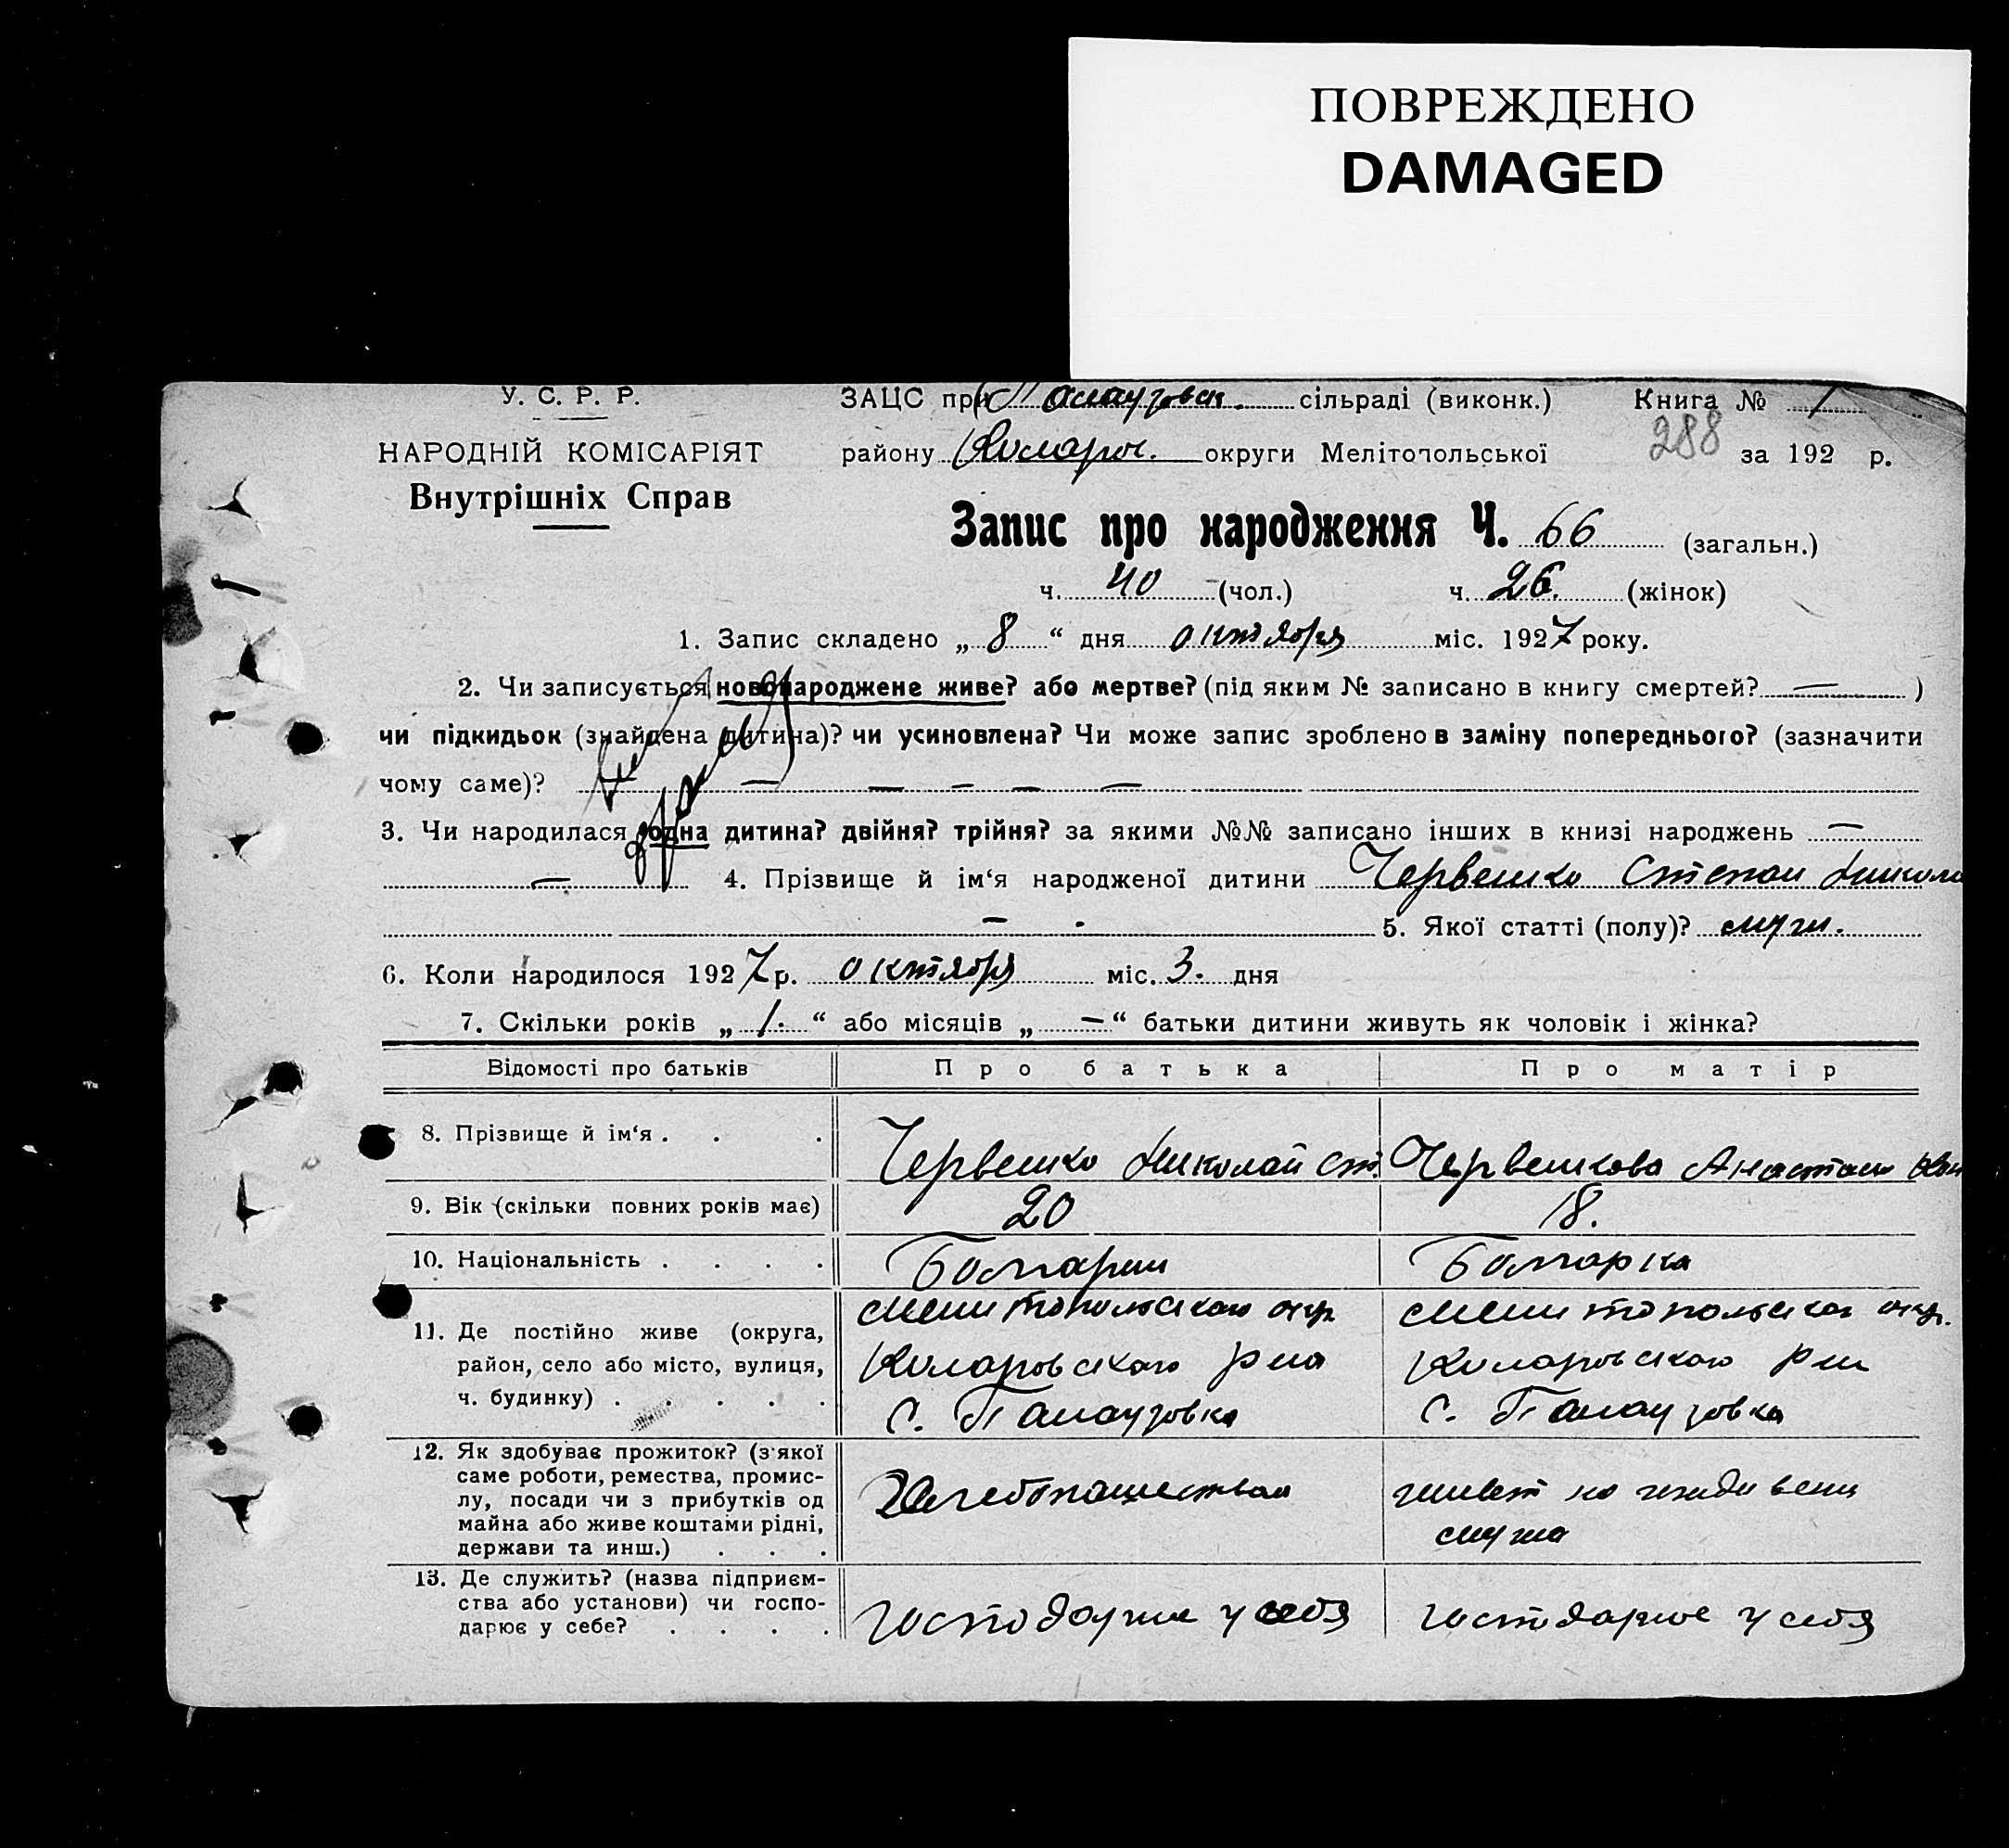 ПОВРЕЖДЕНО
DAMAGED
У. С. Р. Р. ЗАЦС при Палаузовск. сільраді (виконк.) Книга № 1
НАРОДНІЙ КОМІСАРІЯТ району Коларов. округи Мелітопольської 288 за 192 р.
Внутрішніх Справ
Запис про народження Ч. 66 (загальн.)
ч. 40 (чол.) ч. 26. (жінок)
1. Запис складено „ 8 “ дня октября міс. 1927 року.
2. Чи записується новонароджене живе? або мертве? (під яким № записано в книгу смертей? — )
чи підкидьок (знайдена дитина)? чи усиновлена? Чи може запис зроблено в заміну попереднього? (зазначити
чому саме)? — — — — —
3. Чи народилася одна дитина? двійня? трійня? за якими №№ записано інших в книзі народжень —
— 4. Прізвище й ім‘я народженої дитини Червенко Степан Никола
— . 5. Якої статті (полу)? муж.
6. Коли народилося 1927 р. октября міс. 3. дня
7. Скільки років „ 1. “ або місяців „ — “ батьки дитини живуть як чоловік і жінка?
Відомості про батьків Про батька Про матір
8. Прізвище й ім‘я . . . Червенко Николай Ст. Червенкова Анастаси Кон
9. Вік (скільки повних років має) 20 18.
10. Національність . . . . Болгарин Болгарка
11. Де постійно живе (округа, район, село або місто, вулиця, ч. будинку) . . . . .
Мелитопольского окр. Мелитопольског окр.
Коларовского р на Коларовского р на
С. Палаузовка С. Палаузовка
12. Як здобуває прожиток? (з якої саме роботи, ремества, промислу, посади чи з прибутків од майна або живе коштами рідні, держави та инш.) . . .
Хлебопашеством живет на иждивении
мужа
13. Де служить? (назва підприємства або установи) чи господарює у себе? . . . .
господарює у себя господарює у себя